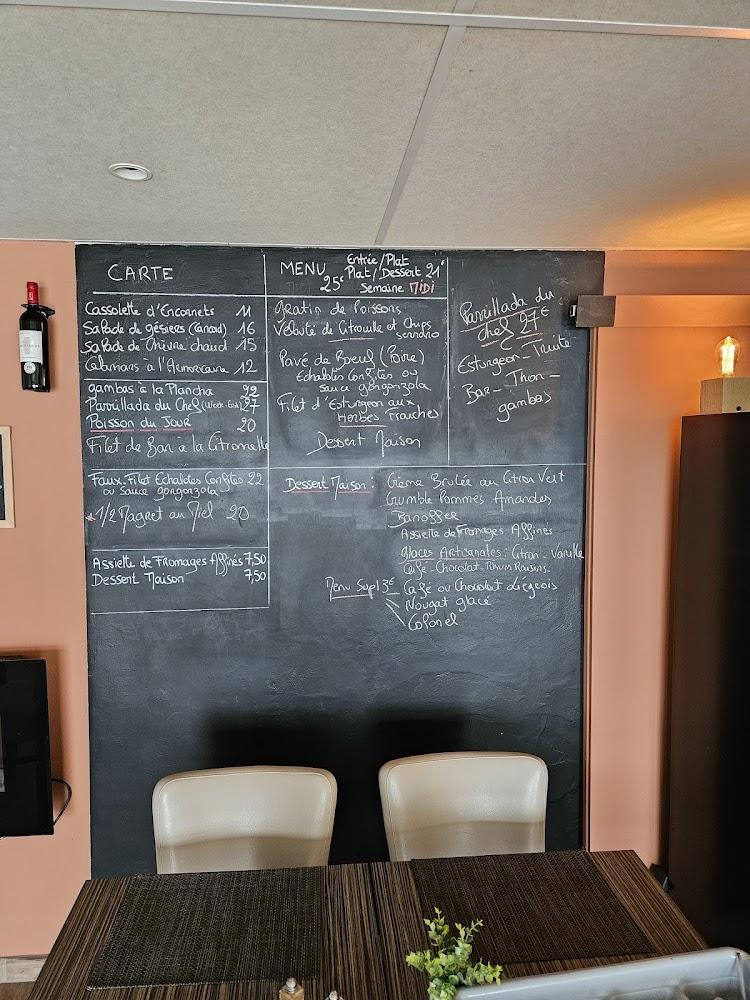 CARTE
Cassolette d'Encornets 11
Salade de gésiers (Canard) 16
Salade de Chèvre chaud 15
Calamars à l'Armoricaine 12
gambas à la Plancha 22
Parrillada du Chef (Week-End) 27
Poisson du Jour 20
Filet de Bar à la Citronnelle
Faux-Filet Echalotes Confites 22
ou Sauce gorgonzola
1/2 Magret au Miel 20
Assiette de Fromages Affinés 7,50
Dessert Maison 7,50
MENU 25€
Entrée/Plat
Plat/Dessert 21€
Semaine MIDI
gratin de Poissons
Velouté de Citrouille et Chips
Pavé de Boeuf (Poire)
Echalotes Confites ou
Sauce gorgonzola
Filet d'Esturgeon aux
Herbes Fraiches
Dessert Maison
Parrillada du
Chef 27€
Esturgeon - Truite
Bar - Thon -
gambas
Dessert Maison :
Crème Brulée au Citron Vert
Crumble Pommes Amandes
Banoffee
Assiette de Fromages Affines
glaces Artisanales : Citron - Vanille
Café - Chocolat - Rhum Raisins
Menu Supl 3€
Café ou Chocolat Liégeois
Nougat glacé
Colonel